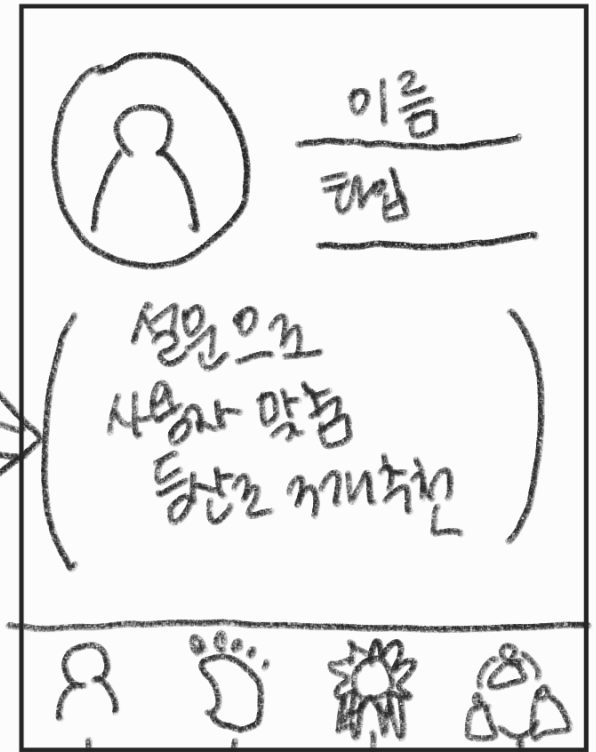 이름
타입
설문으로
사용자 맞춤
등산로 3개 추천